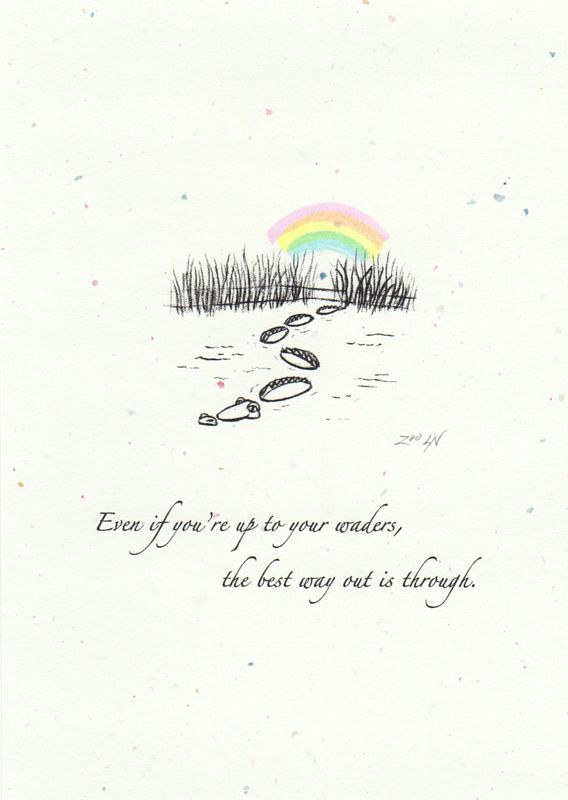 Even if you're up to your waders,
the best way out is through.